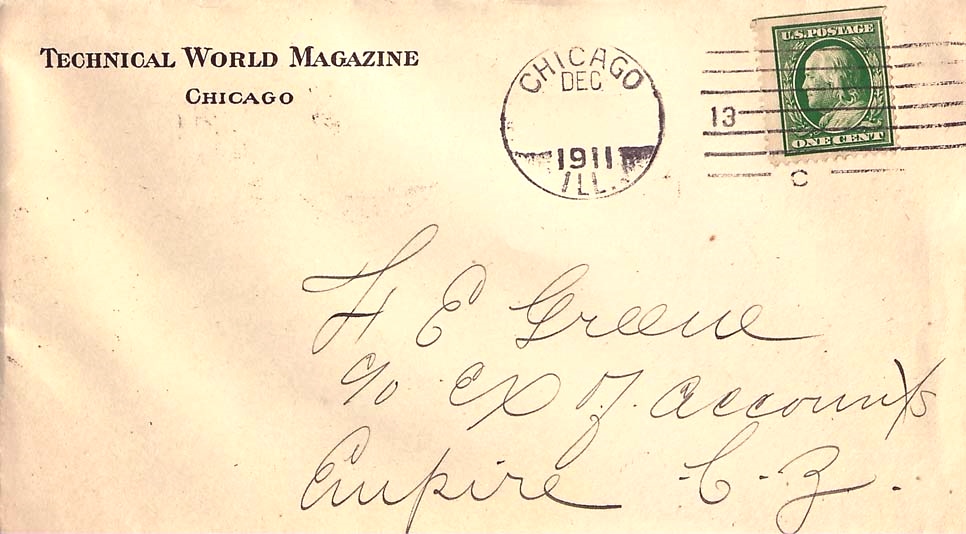 TECHNICAL WORLD MAGAZINE
CHICAGO
CHICAGO
DEC
1911
ILL.
13
C
U.S. POSTAGE
ONE CENT
H E Greene
c/o Ex Of. Accounts
Empire C. Z.